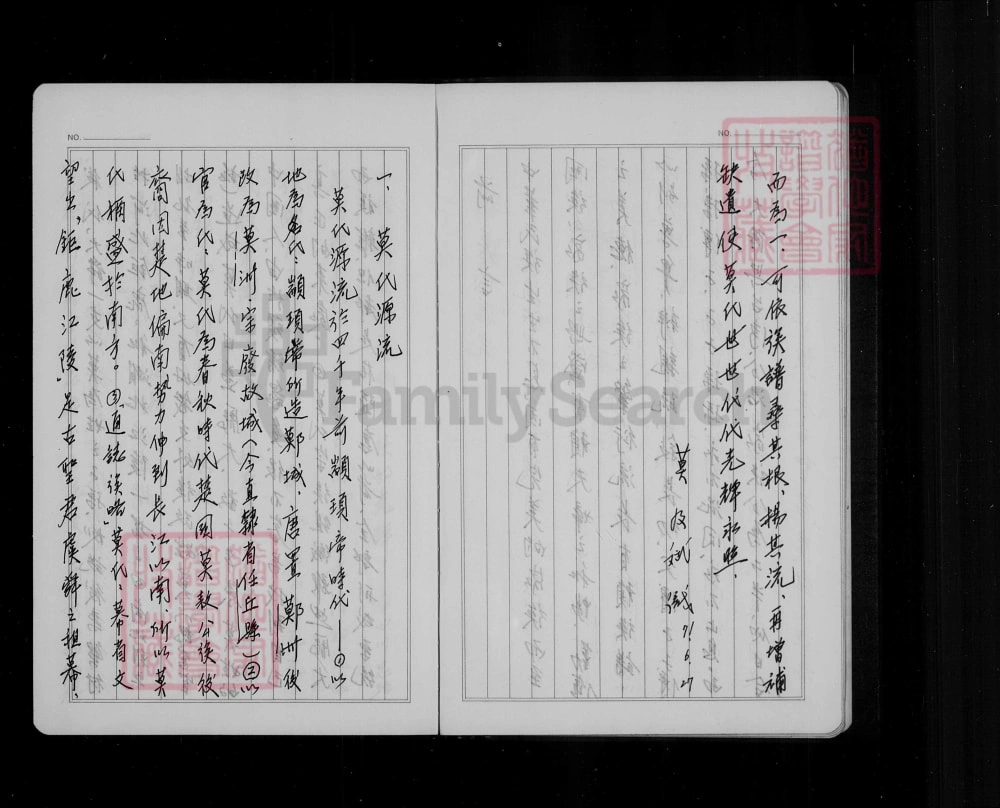 而為一、可依族譜尋其根、揚其流、再增補
缺遺使莫代世世代代光輝永照．
莫 斌 識 71.6.27
一、莫代源流
莫代源流於四千年前顓頊帝時代——①以
地為名代：顓頊帝所造鄚城．唐置鄚州後
改為莫州．宋廢故城（今直隸省任丘縣）②以
官為代：莫代為春秋時代楚國莫敖公族後
裔因楚地偏南勢力伸到長江以南．所以莫
代頗盛於南方。③「通誌族略」莫代、幕省文
望出，鉅鹿江陵」是古聖君虞舜之祖幕、
NO.
NO.
FamilySearch